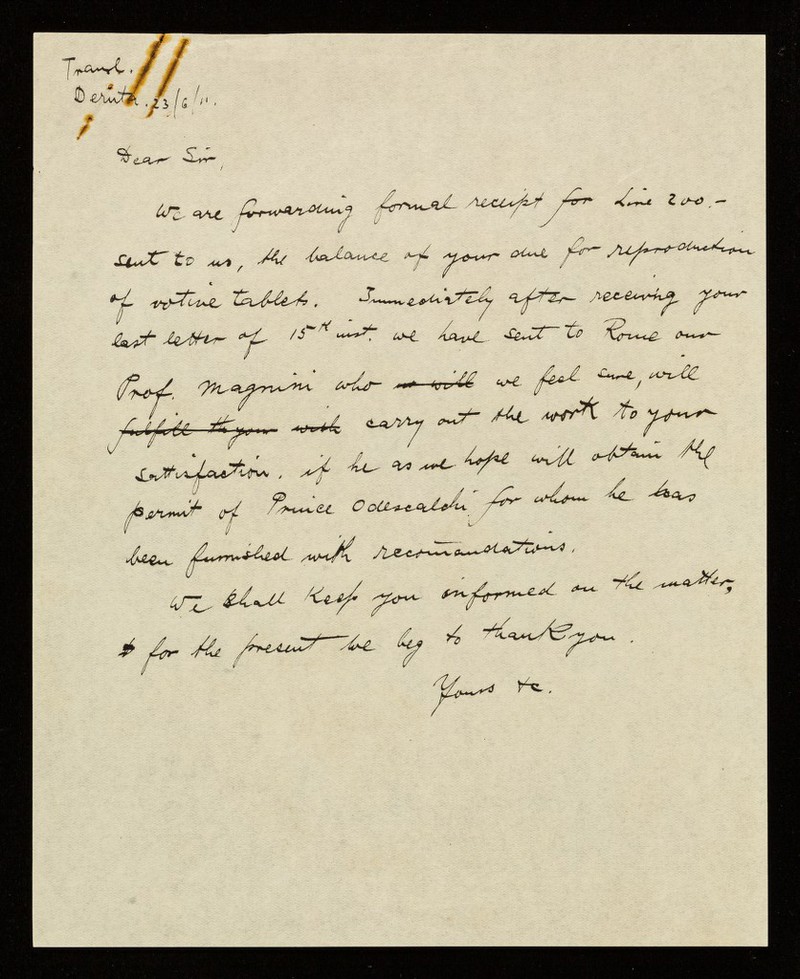 Transl.
Deruta. 23/6/11.
Dear Sir,
We are forwarding formal receipt for Lire 200.-
sent to us, the balance of your due for reproduction
of votive tablets. Immediately after receiving your
last letter of 15th inst. we have sent to Rome our
Prof. Magnini who we feel sure, will
carry out the work to your
sattisfaction. if he as we hope will obtain the
permit of Prince Odescalchi for whom he has
been furnished with recomandations.
We shall keep you informed on the matter,
& for the present we beg to thank you.
Yours &c.